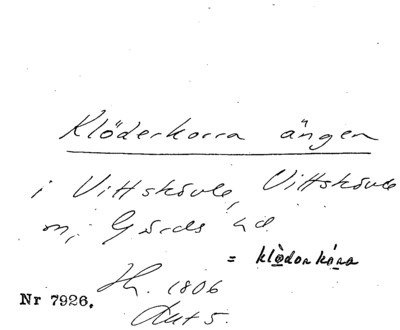 Klöderkorra ängen
i Vittskövle, Vittskövle
sn, Gärds hd
= klödorkóra
Hh. 1806
Nr 7926.
Akt 5.